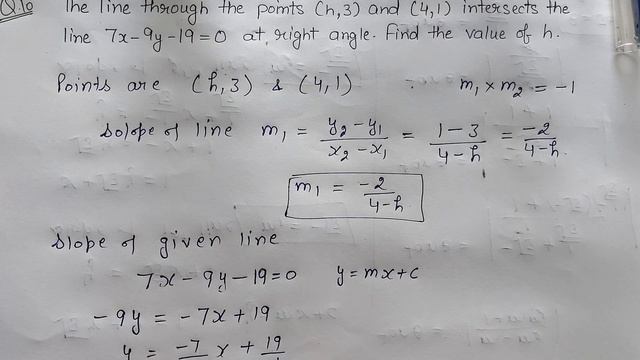 Q.10 The line through the points (h,3) and (4,1) intersects the
line 7x-9y-19=0 at right angle. Find the value of h.
Points are (h,3) & (4,1) m₁ × m₂ = -1
Solope of line m₁ = (y₂-y₁)/(x₂-x₁) = (1-3)/(4-h) = -2/(4-h)
m₁ = -2/(4-h)
Slope of given line
7x-9y-19=0 y=mx+c
-9y = -7x+19
y = -7/ x + 19/